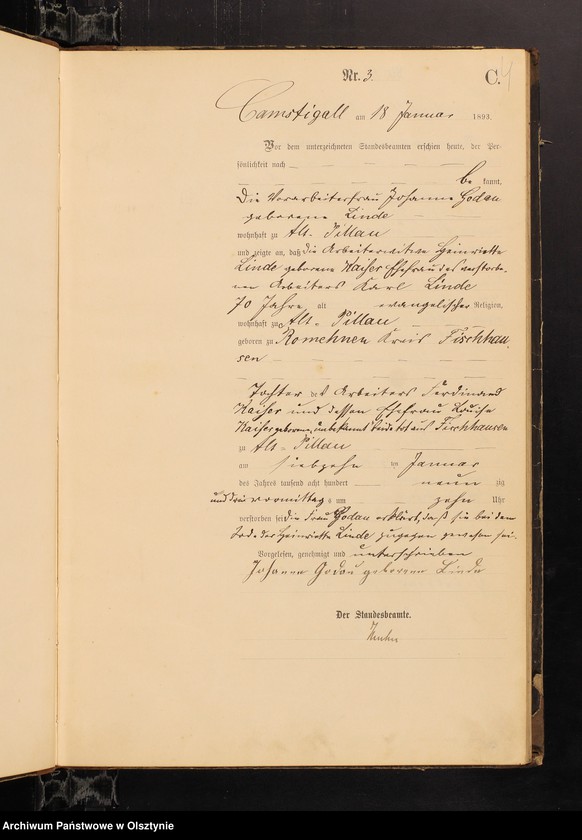 Nr. 3.
C.
Camstigall am 18 Januar 1893.
Vor dem unterzeichneten Standesbeamten erschien heute, der Per-
sönlichkeit nach
be kannt,
die Vorarbeiterfrau Johanne Godau
geborene Linde
wohnhaft zu Alt-Pillau
und zeigte an, daß die Arbeiterwitwe Heinriette
Linde geborene Kaiser Ehefrau des verstorbe-
nen Arbeiters Karl Linde
70 Jahre alt evangelischer Religion,
wohnhaft zu Alt-Pillau
geboren zu Romehnen Kreis Fischhau-
sen
Tochter des Arbeiters Ferdinand
Kaiser und dessen Ehefrau Louise
Kaiser geborene, unbekannt beide tot aus Fischhausen
zu Alt-Pillau
am siebzehn ten Januar
des Jahres tausend acht hundert neun zig
und drei vormittag s um zehn Uhr
verstorben sei die Frau Godau erklärt, daß sie bei dem
Tode der Heinriette Linde zugegen gewesen sei.
Vorgelesen, genehmigt und unterschrieben
Johanne Godau geborene Linde
Der Standesbeamte.
Archiwum Państwowe w Olsztynie